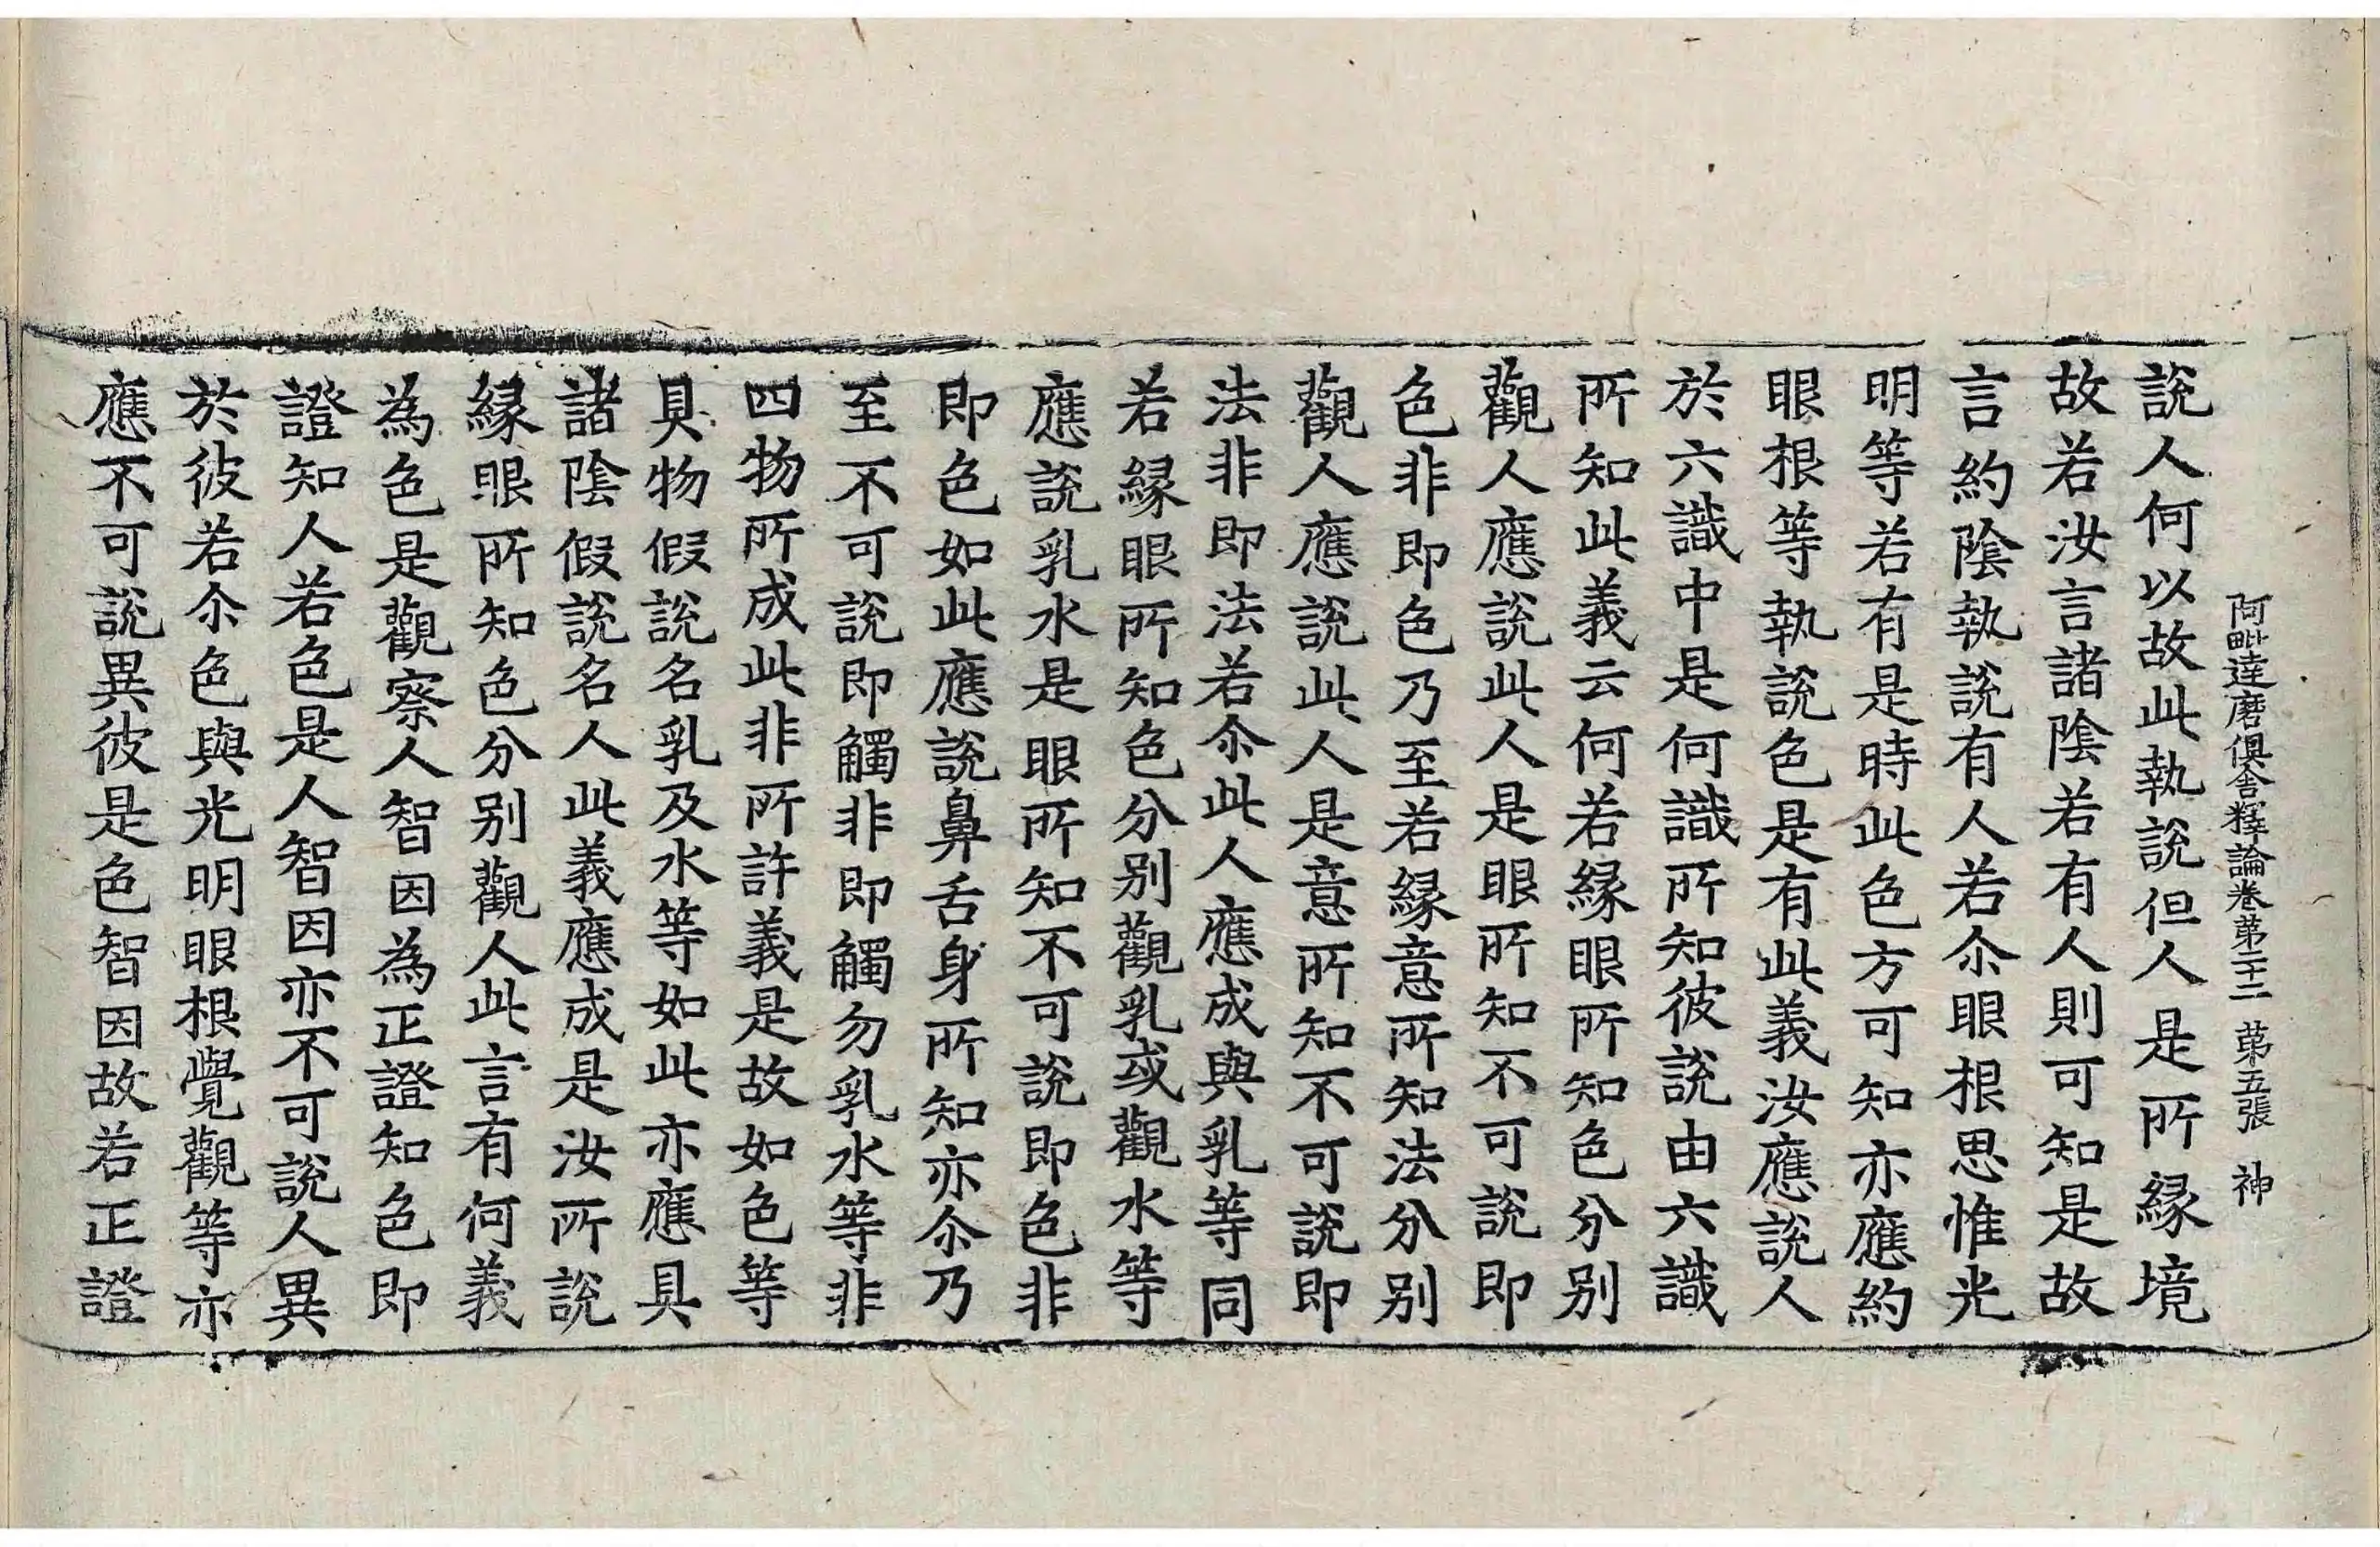 阿毗達磨俱舍釋論卷第二十二 第五張 神
說人何以故此執說但人是所緣境
故若汝言諸陰若有人則可知是故
言約陰執說有人若尒眼根思惟光
明等若有是時此色方可知亦應約
眼根等執說色是有此義汝應說人
於六識中是何識所知彼說由六識
所知此義云何若緣眼所知色分別
觀人應說此人是眼所知不可說即
色非即色乃至若緣意所知法分別
觀人應說此人是意所知不可說即
法非即法若尒此人應成與乳等同
若緣眼所知色分別觀乳或觀水等
應說乳水是眼所知不可說即色非
即色如此應說鼻舌身所知亦尒乃
至不可說即觸非即觸勿乳水等非
四物所成此非所許義是故如色等
具物假說名乳及水等如此亦應具
諸陰假說名人此義應成是汝所說
緣眼所知色分別觀人此言有何義
為色是觀察人智因為正證知色即
證知人若色是人智因亦不可說人異
於彼若尒色與光明眼根覺觀等亦
應不可說異彼是色智因故若正證